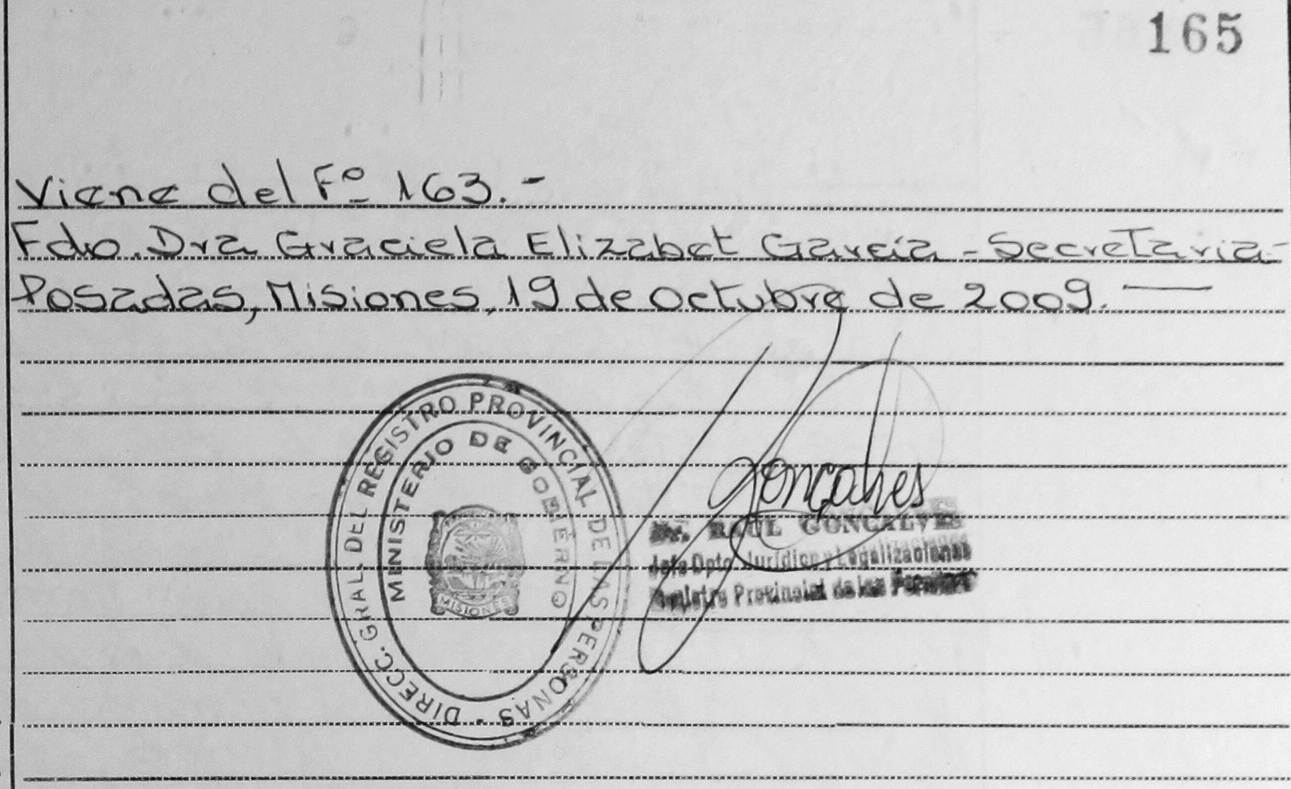 165
Viene del Fº 163.-
Fdo. Dra Graciela Elizabet García - Secretaria-
Posadas, Misiones, 19 de Octubre de 2009. —
DIRECC. GRAL. DEL REGISTRO PROVINCIAL DE LAS PERSONAS -
MINISTERIO DE GOBIERNO
MISIONES
Gonçalves
Dr. RAUL GONCALVES
Jefe Dpto. Jurídico y Legalizaciones
Registro Provincial de las Personas